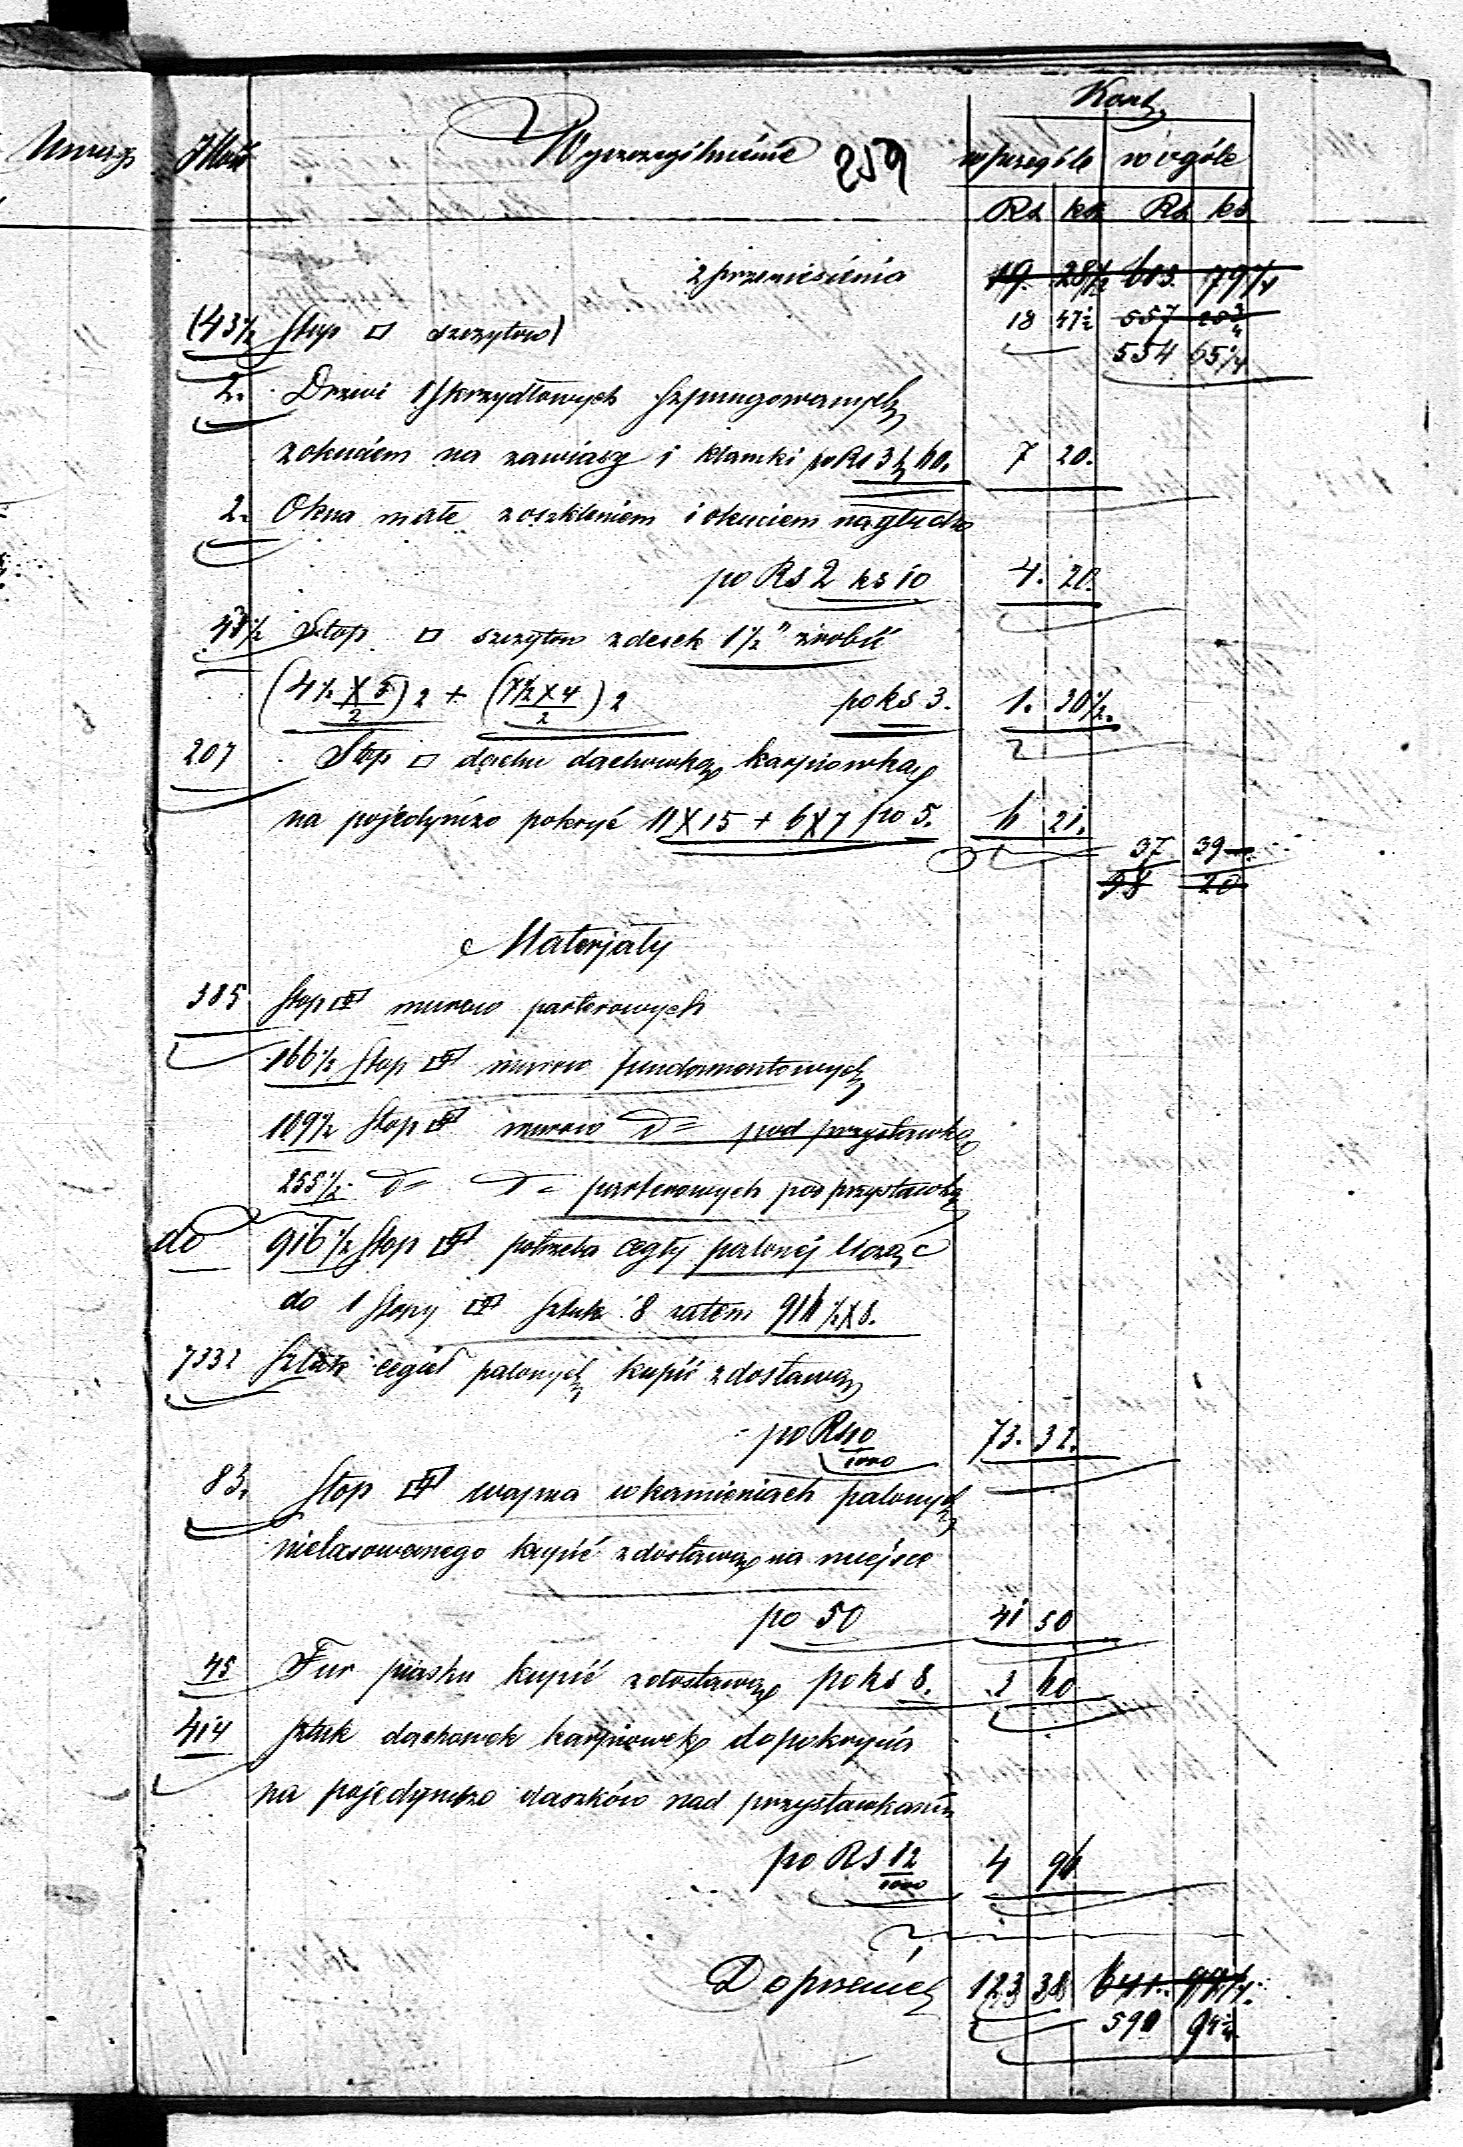 Koszt
Ilość Wyszczególnienie 259 w szczególe w ogóle
Rs ks Rs ks
z przeniesienia 19. 28 1/2 603. 79 1/4
(43 1/2 Stop □ szczytów) 18 47 1/2 557
554 65 1/4
2. Drzwi 1 skrzydłowych szpungowanych
z okuciem na zawiasy i klamki po Rs 3 k 60. 7 20.
2. Okna małe z oszkleniem i okuciem na gładko
po Rs 2 ks 10 4. 20.
43 1/2 Stop □ szczytów z desek 1 1/2" zrobić
(4 1/2 X 5/2) 2 + (X 4/2) 2 po ks 3. 1. 30 1/2.
207 Stop □ dachu dachówką karpiówką
na pojedyńczo pokryć 11 X 15 + 6 X 7 po 3. 6 21.
37 39
38 20
Materjały
385 Stop murów parterowych
166 1/2 Stop murów fundamentowych
109 1/2 Stop murów D= pod przystawką
255 1/2 D= D= parterowych pod przystawką
do 916 1/2 Stop potrzeba cegły palonej licząc
do 1 Stopy Sztuk 8 zatem 916 1/2 X 8.
7332 Sztuk cegieł palonych kupić z dostawą
po Rs 10/1000 73. 32.
83. Stop wapna w kamieniach palonych
nielasowanego kupić z dostawą na miejsce
po 50 41 50
45 Fur piasku kupić z dostawą po ks 8. 3 60
414 sztuk dachówek karpiówek do pokrycia
na pojedyńczo daszków nad przystawkami
po Rs 12/1000 4 96
Do przenies 123 38 641. 99 1/4.
591 94 1/4